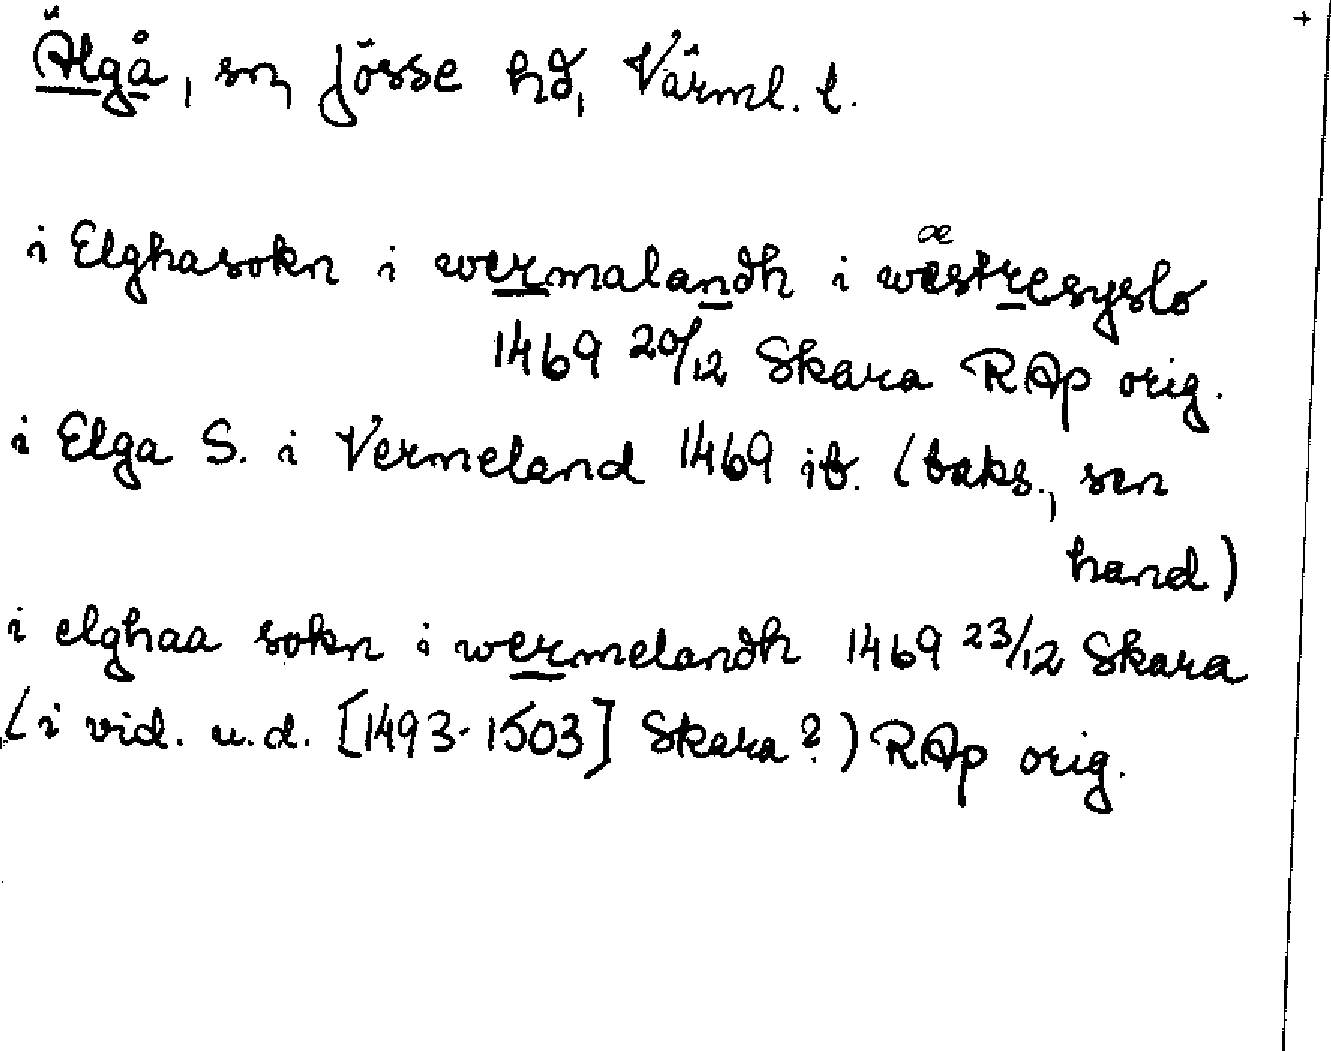 Älgå, sn, Jösse hd, Värml. l. +
i Elghasokn i wermalandh i wæstresyslo
1469 20/12 Skara RAp orig.
i Elga S. i Vermeland 1469 ib. (baks., sen
hand)
i elghaa sokn i wermelandh 1469 23/12 Skara
(i vid. u.d. [1493-1503] Skara?) RAp orig.